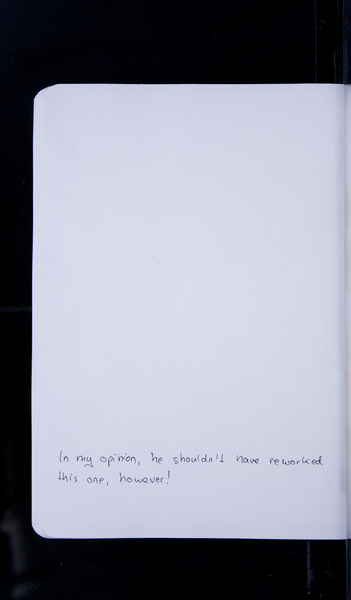 In my opinion, he shouldn't have reworked
this one, however!